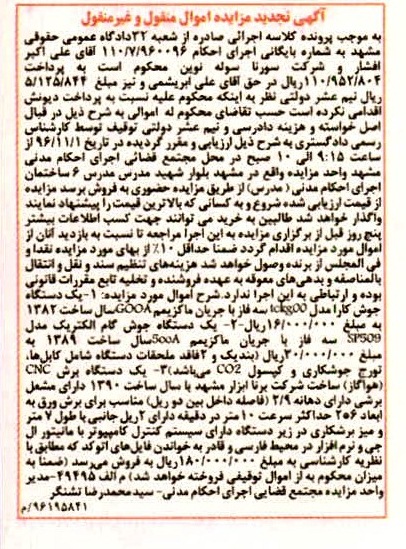 آگهی تجدید مزایده اموال منقول و غیرمنقول
به موجب پرونده کلاسه اجرائی صادره از شعبه ۳۲دادگاه عمومی حقوقی
مشهد به شماره بایگانی اجرای احکام ۱۱۰/۷/۹۶۰۰۹۶ آقای علی اکبر
افشار و شرکت سورنا سوله نوین محکوم است به پرداخت
۱۱۰/۹۵۲/۸۰۴ریال در حق آقای علی ابریشمی و نیز مبلغ ۵/۱۲۵/۸۴۴
ریال نیم عشر دولتی نظر به اینکه محکوم علیه نسبت به پرداخت دیونش
اقدامی نکرده است حسب تقاضای محکوم له اموالی به شرح ذیل در قبال
اصل خواسته و هزینه دادرسی و نیم عشر دولتی توقیف توسط کارشناس
رسمی دادگستری به شرح ذیل ارزیابی و مقرر گردیده در تاریخ ۹۶/۱۱/۱از
ساعت ۹:۱۵ الی ۱۰ صبح در محل مجتمع قضائی اجرای احکام مدنی
مشهد واحد مزایده واقع در مشهد بلوار شهید مدرس مدرس ۶ ساختمان
اجرای احکام مدنی ( مدرس) از طریق مزایده حضوری به فروش برسد مزایده
از قیمت ارزیابی شده شروع و به کسانی که بالاترین قیمت را پیشنهاد نمایند
واگذار خواهد شد طالبین به خرید می توانند جهت کسب اطلاعات بیشتر
پنج روز قبل از برگزاری مزایده به این اجرا مراجعه تا نسبت به بازدید آنان از
اموال مورد مزایده اقدام گردد ضمنا حداقل ۱۰٪ از بهای مورد مزایده نقدا و
فی المجلس از برنده وصول خواهد شد هزینه‌های تنظیم سند و نقل و انتقال
بالمناصفه و بدهی‌های معوقه به عهده فروشنده و تخلیه تابع مقررات قانونی
بوده و ارتباطی به این اجرا ندارد.شرح اموال مورد مزایده: ۱-یک دستگاه
جوش کارا مدل tckg00 سه فاز با جریان ماکزیمم G00Aسال ساخت ۱۳۸۲
به مبلغ ۱۶/۰۰۰/۰۰۰ریال-۲- یک دستگاه جوش گام الکتریک مدل
SP509 سه فاز با جریان ماکزیمم 500Aسال ساخت ۱۳۸۹ به
مبلغ ۲۰/۰۰۰/۰۰۰ریال (بندیک و ۲فاقد ملحقات دستگاه شامل کابل‌ها،
تورچ جوشکاری و کپسول CO2 می‌باشد)۳- یک دستگاه برش CNC
(هواگاز) ساخت شرکت برنا ابزار مشهد با سال ساخت ۱۳۹۰ دارای مشعل
برشی دارای دهانه ۲/۹ (فاصله داخل بین دو ریل) مناسب برای برش ورق به
ابعاد ۶*۲ حداکثر سرعت ۱۰متر در دقیقه دارای ۲ریل جانبی با طول ۷ متر
و میز برشکاری در زیر دستگاه دارای سیستم کنترل کامپیوتر با مانیتور ال
جی و نرم افزار در محیط فارسی و قادر به خواندن فایل‌های اتوکد که مطابق با
نظریه کارشناسی به مبلغ ۱۸۰/۰۰۰/۰۰۰ریال به فروش می‌رسد (ضمنا به
میزان محکوم به از اموال توقیفی فروخته خواهد شد) م الف ۴۹۴۹۵-مدیر
واحد مزایده مجتمع قضایی اجرای احکام مدنی- سیدمحمدرضا تشنگر
۹۶۱۹۵۸۴۱/م